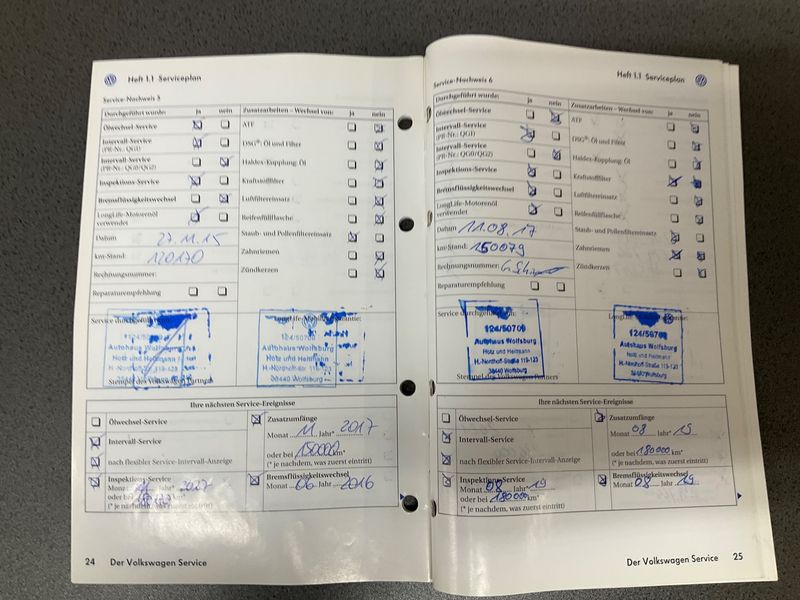 Heft 1.1 Serviceplan
Service-Nachweis 5
Durchgeführt wurde: ja nein
Ölwechsel-Service
Intervall-Service
(PR-Nr.: QG1)
Intervall-Service
(PR-Nr.: QG0/QG2)
Inspektions-Service
Bremsflüssigkeitswechsel
LongLife-Motorenöl
verwendet
Datum 27.11.15
km-Stand: 120170
Rechnungsnummer:
Reparaturempfehlung
Zusatzarbeiten – Wechsel von: ja nein
ATF
DSG®: Öl und Filter
Haldex-Kupplung: Öl
Kraftstofffilter
Luftfiltereinsatz
Reifenfüllflasche
Staub- und Pollenfiltereinsatz
Zahnriemen
Zündkerzen
Service durchgeführt
124/50709
Autohaus Wolfsburg
Hotz und Heitmann
Stempel des Volkswagen Partners
124/50709
Autohaus Wolfsburg
Hotz und Heitmann
H.-Nordhoff-Str.
38440 Wolfsburg
Ihre nächsten Service-Ereignisse
Ölwechsel-Service
Intervall-Service
nach flexibler Service-Intervall-Anzeige
Inspektions-Service
oder bei km*
(* je nachdem, was zuerst eintritt)
Zusatzumfänge
Monat 11 Jahr* 2017
oder bei 150000 km*
(* je nachdem, was zuerst eintritt)
Bremsflüssigkeitswechsel
Monat 06 Jahr 2016
24 Der Volkswagen Service
Heft 1.1 Serviceplan
Service-Nachweis 6
Durchgeführt wurde: ja nein
Ölwechsel-Service
Intervall-Service
(PR-Nr.: QG1)
Intervall-Service
(PR-Nr.: QG0/QG2)
Inspektions-Service
Bremsflüssigkeitswechsel
LongLife-Motorenöl
verwendet
Datum 11.08.17
km-Stand: 150079
Rechnungsnummer:
Reparaturempfehlung
Zusatzarbeiten – Wechsel von: ja nein
ATF
DSG®: Öl und Filter
Haldex-Kupplung: Öl
Kraftstofffilter
Luftfiltereinsatz
Reifenfüllflasche
Staub- und Pollenfiltereinsatz
Zahnriemen
Zündkerzen
Service durchgeführt
124/50709
Autohaus Wolfsburg
Hotz und Heitmann
H.-Nordhoff-Straße 119-123
Stempel des Volkswagen Partners
124/50709
Autohaus Wolfsburg
Hotz und Heitmann
H.-Nordhoff-Straße 119-123
38440 Wolfsburg
Ihre nächsten Service-Ereignisse
Ölwechsel-Service
Intervall-Service
nach flexibler Service-Intervall-Anzeige
Inspektions-Service
Monat 08 Jahr* 19
oder bei 180000 km*
(* je nachdem, was zuerst eintritt)
Zusatzumfänge
Monat 08 Jahr* 19
oder bei 180000 km*
(* je nachdem, was zuerst eintritt)
Bremsflüssigkeitswechsel
Monat 08 Jahr 19
Der Volkswagen Service 25